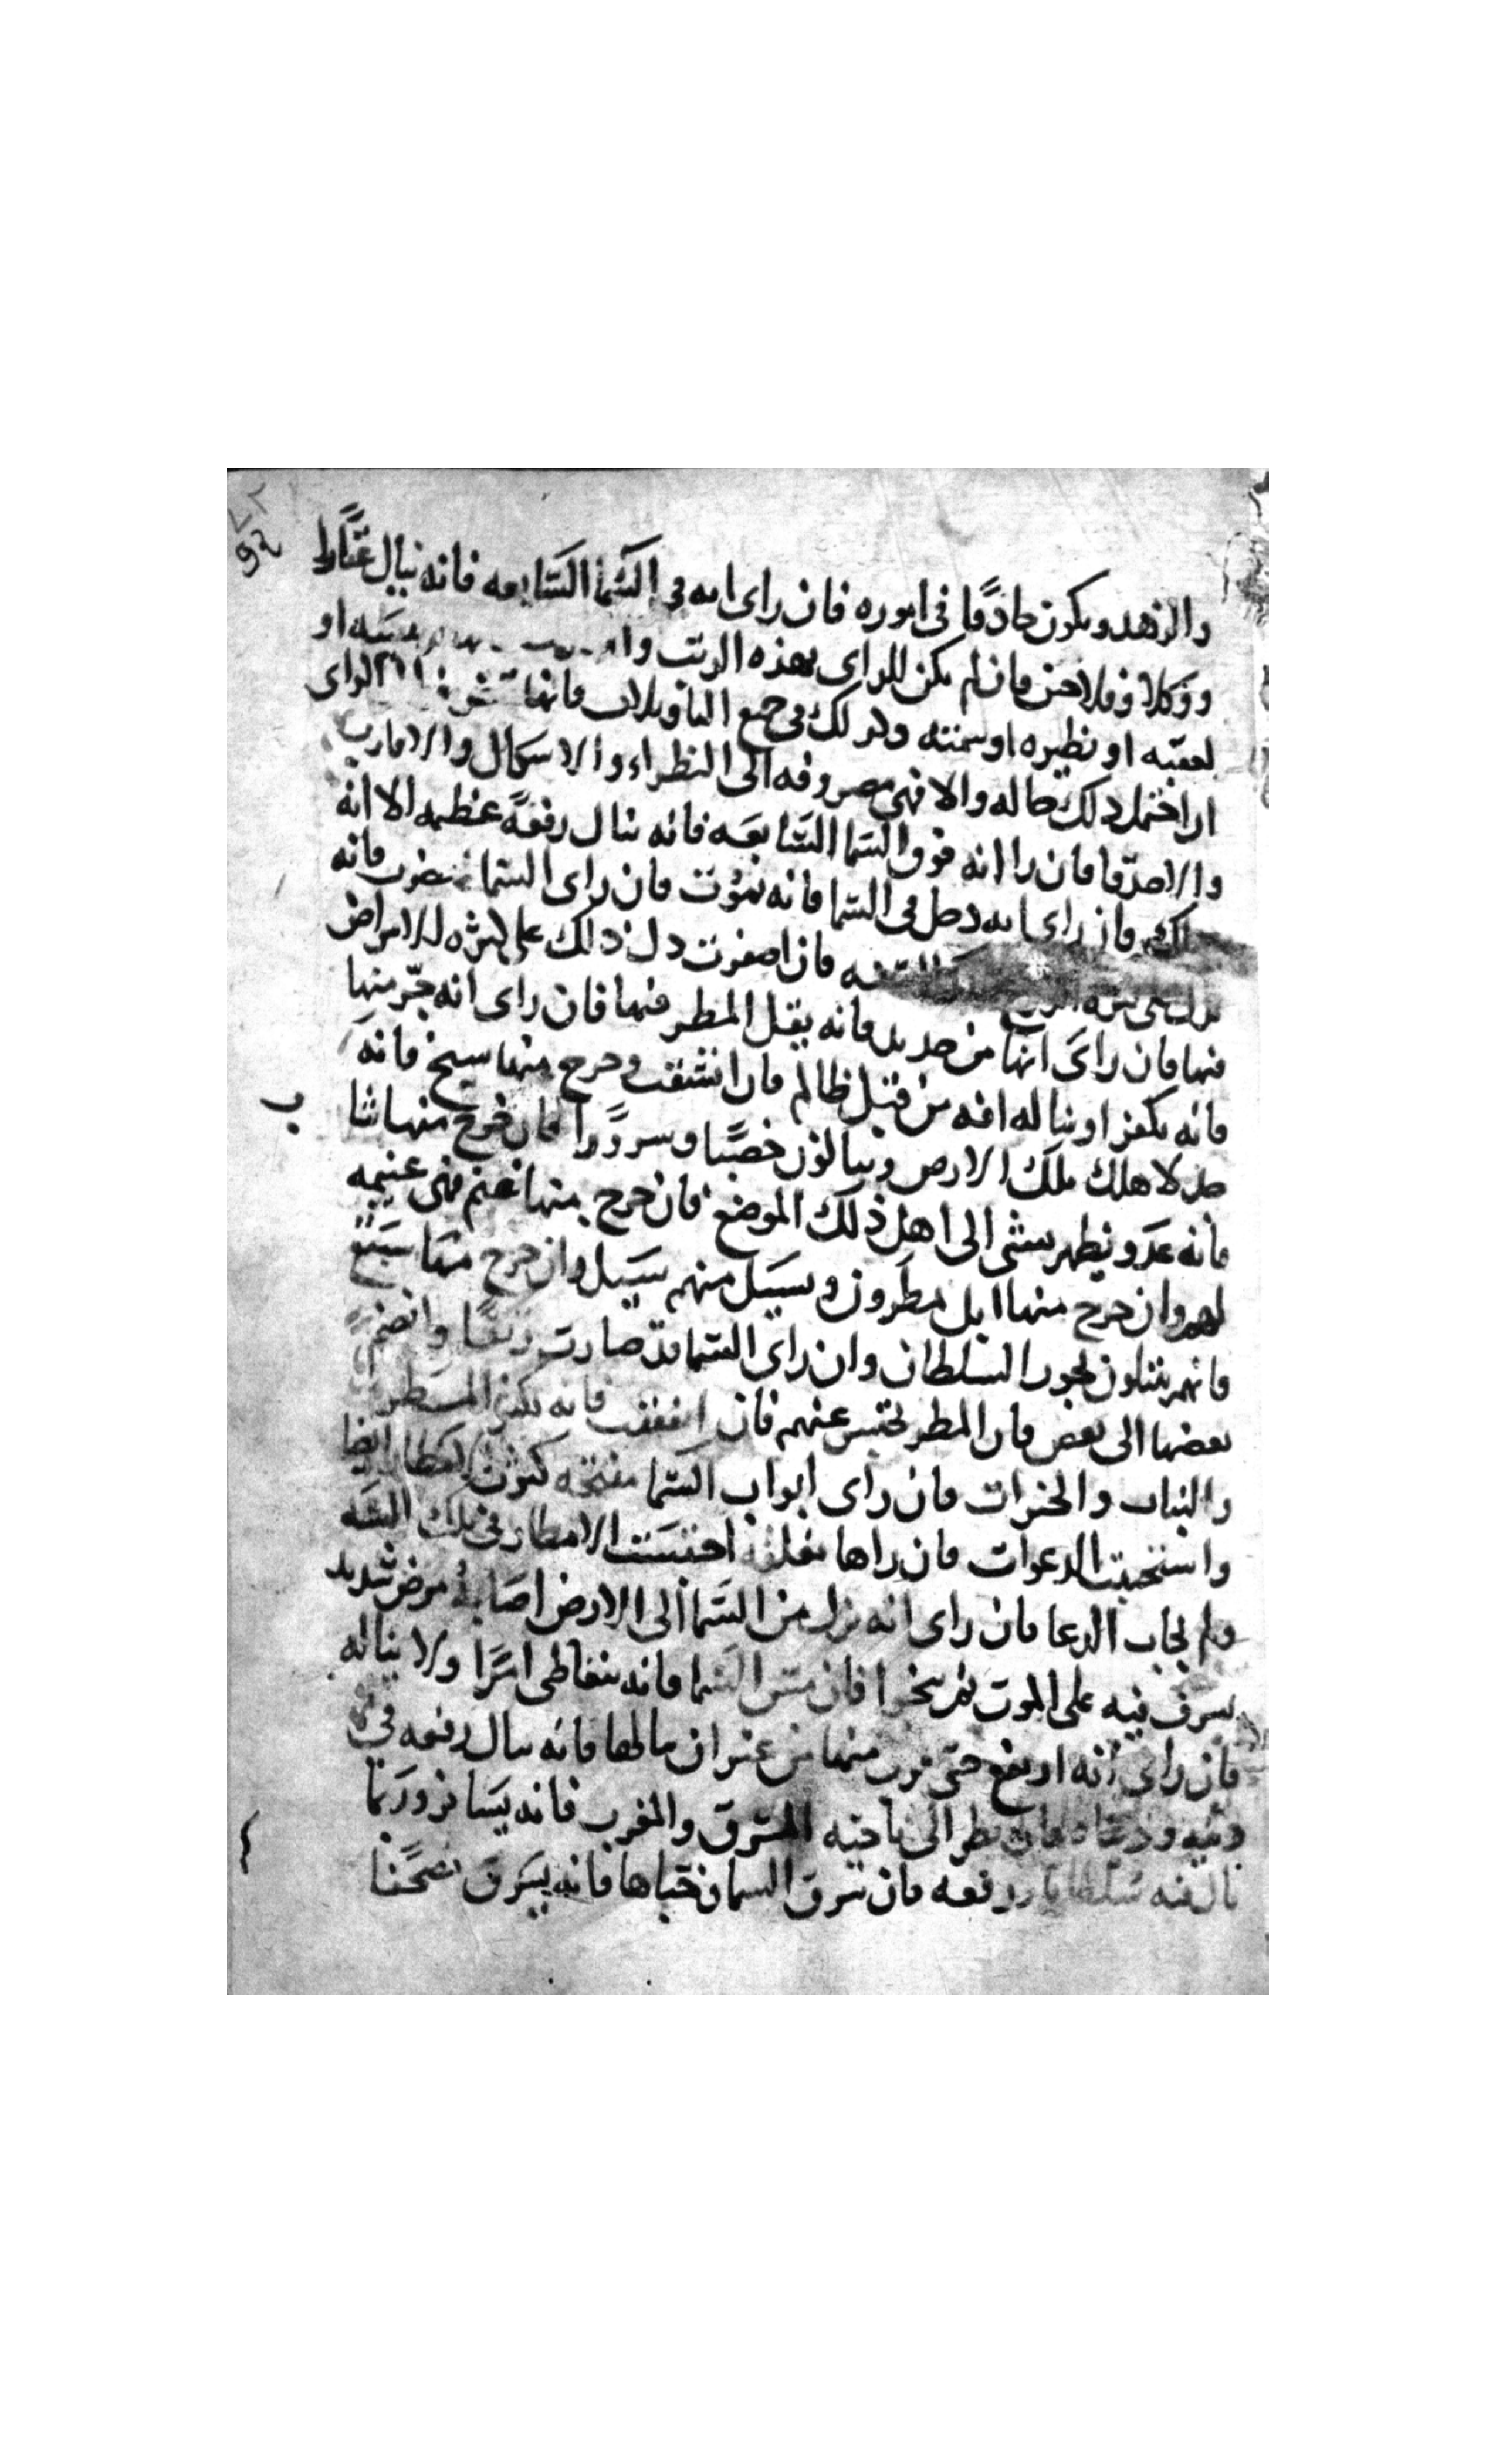 والزهد ويكون حاذقا في اموره فان راى انه في السما السابعه فانه ينال عقارا
ووكلا وفلاحين فان لم يكن للراى بهذه الرتب او
لعقبه او نظيره او سمته وكذلك في جميع التاويلات فانها الراى
ان احتمل ذلك حاله والا فهي مصروفه الى النظراء والاشكال والاقارب
والاصدقا فان راا انه فوق السما السابعه فانه ينال رفعة عظيمه الا انه
فان راى انه دخل في السما فانه يموت فان راى السما تخضرت فانه
السنه فان اصفرت دل ذلك على كثرة الامراض
فيها فان راى انها من حديد فانه يقل المطر فيها فان راى انه خر منها
فانه يكفر او يناله افه من قبل ظالم فان انشقت وخرج منها شيخ فانه
جد لاهل تلك الارض وينالون خصبا وسرورا فان خرج منها شابا
فانه عدو يظهر يسئ الى اهل ذلك الموضع فان خرج منها غنم فهي غنيمه
لهم وان خرج منها ابل يمطرون ويسيل منهم سيل وان خرج منها سبع
فانهم يبتلون بجور السلطان وان راى السما قد صارت رتقا وانضم
بعضها الى بعض فان المطر يحتبس عنهم فان انفتقت فانه يكثر المطر
والنبات والخيرات فان راى ابواب السما مفتحه كثرت الامطار ايضا
واستجيبت الدعوات فان راها مغلقه احتبست الامطار في تلك السنه
ولم يجاب الدعا فان راى انه نزل من السما الى الارض اصابه مرض شديد
يشرف فيه على الموت ثم ينجوا فان مس السما فانه يتعاطى امرا ولا يناله
فان راى انه ارتفع حتى قرب منها من غير ان نالها فانه ينال رفعه في
دينه ودنياه فان نظر الى ناحيه المشرق والمغرب فانه يسافر وربما
نال فيه سلطانا ورفعه فان سرق السما وخباها فانه يسرق مصحفا